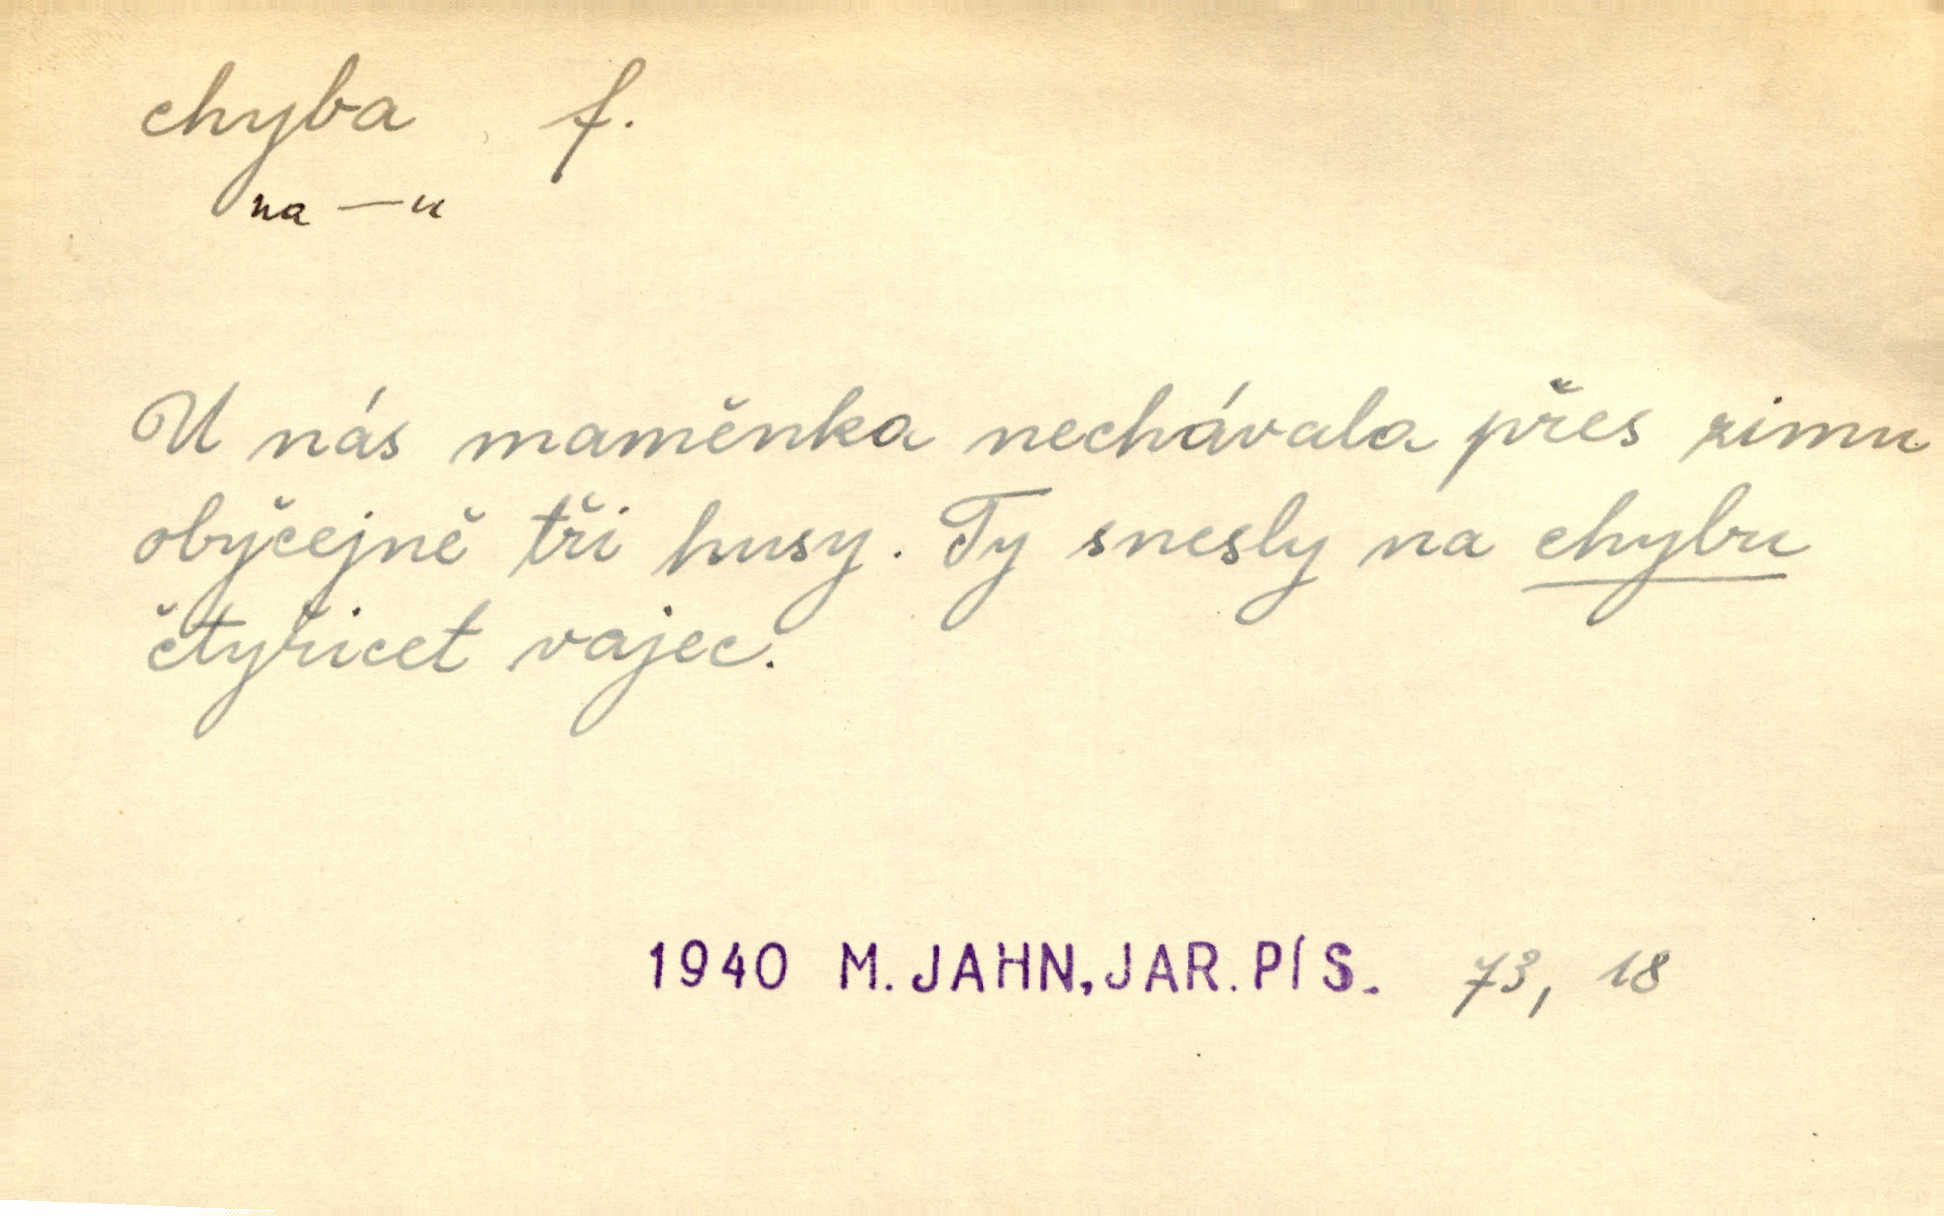 chyba f.
na —u
U nás maměnka nechávala přes zimu
obyčejně tři husy. Ty snesly na chybu
čtyřicet vajec.
1940 M. JAHN, JAR. PÍS. 73, 18